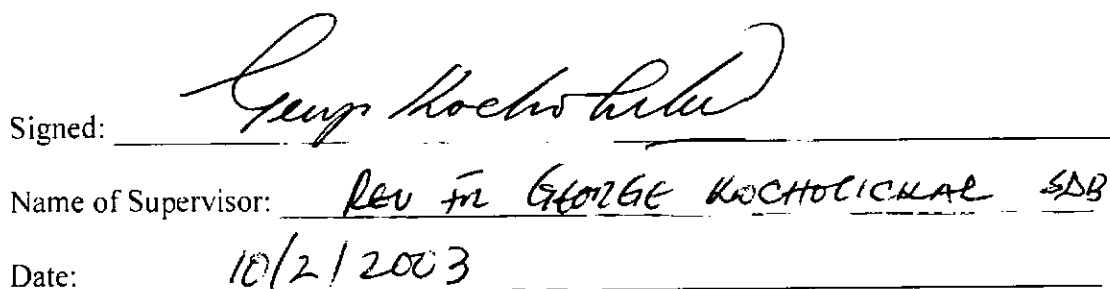 Signed: George Kocholickal
Name of Supervisor: REV FR GEORGE KOCHOLICKAL SDB
Date: 10/2/2003